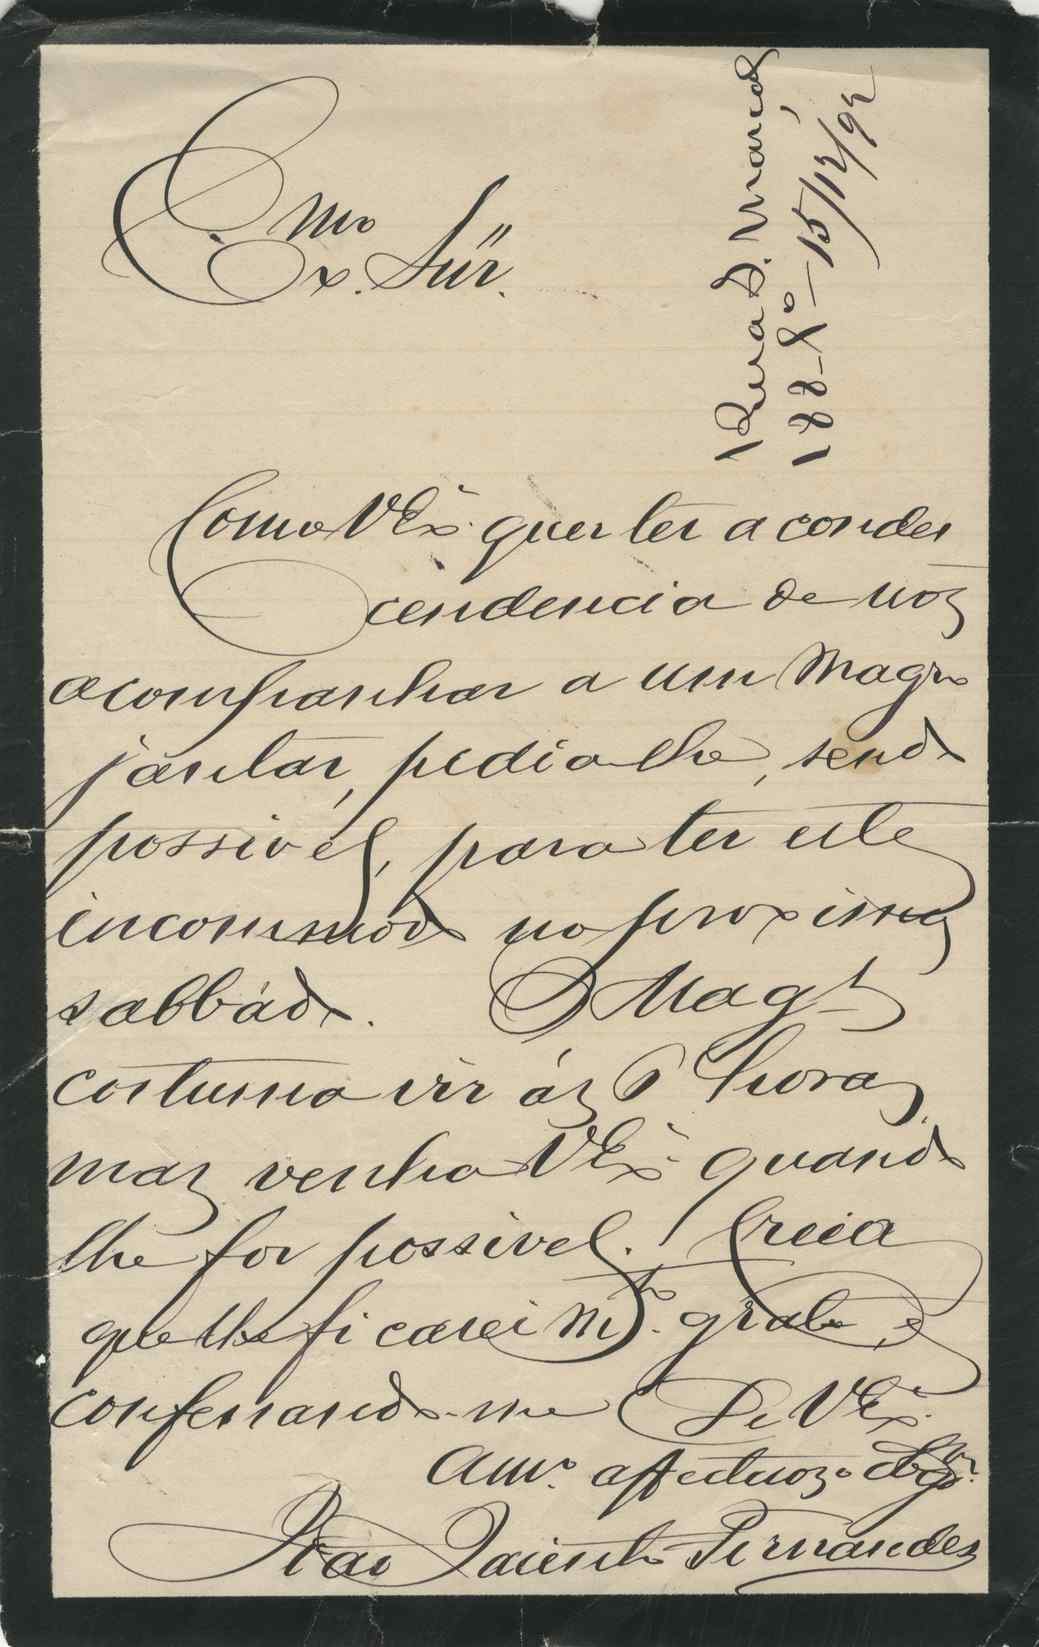 Rua S. Marçal
188-1º-15/12/92
Exmo. Snr.
Como VExª quer ter a condes
cendencia de nos
acompanhar a um magro
jantar, pedia lhe, sendo
possivel, para ter este
incommodo no proximo
sabbado. O Mag.
costuma vir ás 6 horas,
mas venha VExª quando
lhe for possivel. Creia
que lhe ficarei mtº. grato, e
confessando-me De VExª
Amº. affectuozo obgº.
João Jacintho Fernandes